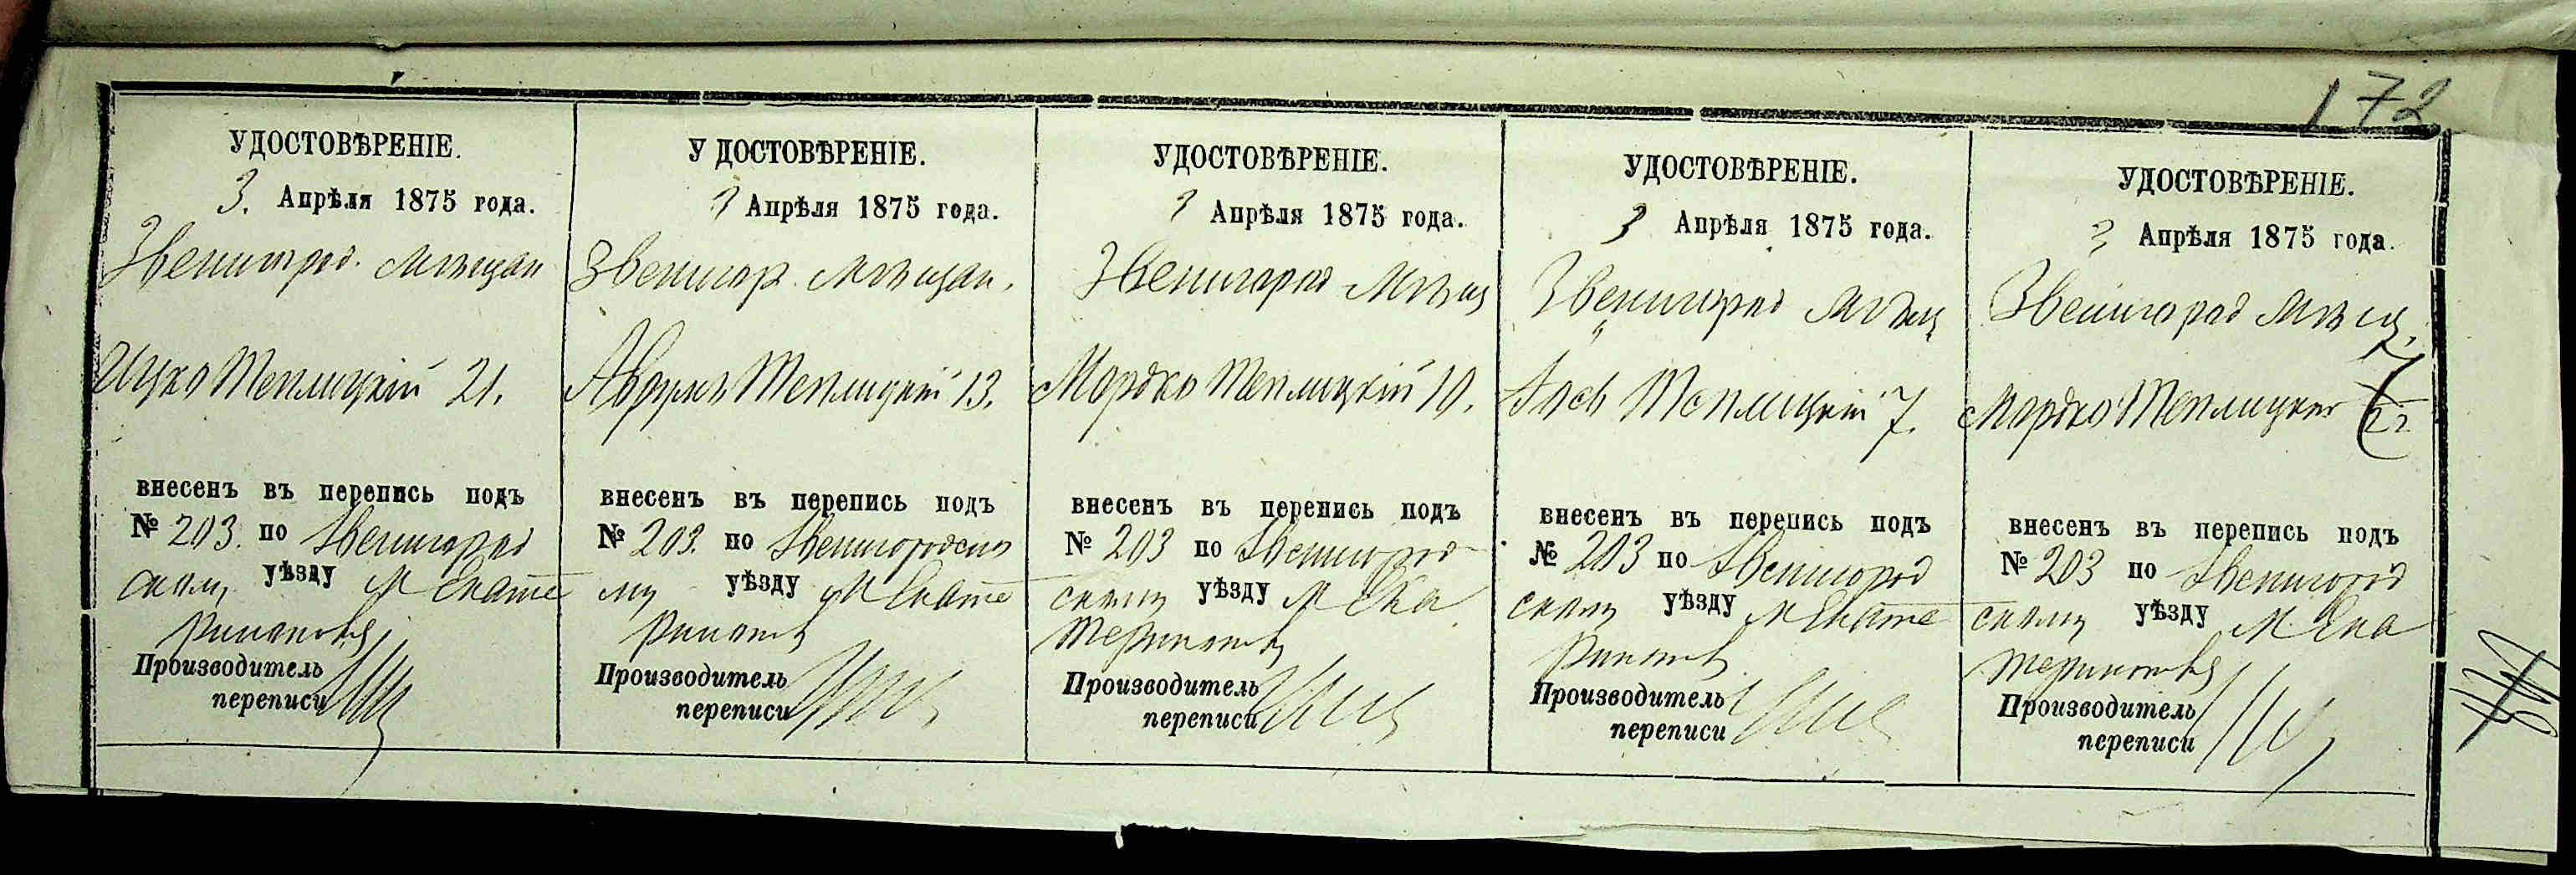 172
УДОСТОВѢРЕНІЕ.
3. Апрѣля 1875 года.
Звенигород. мѣщан
Ицко Теплицкій 21.
внесенъ въ перепись подъ
№ 203. по Звенигород
скому уѣзду м Екате
ринополь
Производитель
переписи
У ДОСТОВѢРЕНІЕ.
3 Апрѣля 1875 года.
Звенигор. мѣщан.
Аврумъ Теплицкій 13.
внесенъ въ перепись подъ
№ 203. по Звенигородско
му уѣзду м Екате
ринополь
Производитель
переписи
УДОСТОВѢРЕНІЕ.
3 Апрѣля 1875 года.
Звенигород мѣщ
Мордко Теплицкій 10.
внесенъ въ перепись подъ
№ 203 по Звенигород
скому уѣзду м Ека
теринополь
Производитель
переписи
УДОСТОВѢРЕНІЕ.
3 Апрѣля 1875 года.
Звенигород мѣщ
Іось Теплицкій 7.
внесенъ въ перепись подъ
№ 203 по Звенигород
скому уѣзду м Екате
ринополь
Производитель
переписи
УДОСТОВѢРЕНІЕ.
3 Апрѣля 1875 года.
Звенигород мѣщ.
Мордко Теплицкій 7/22
внесенъ въ перепись подъ
№ 203 по Звенигород
скому уѣзду м. Ека
теринополь
Производитель
переписи